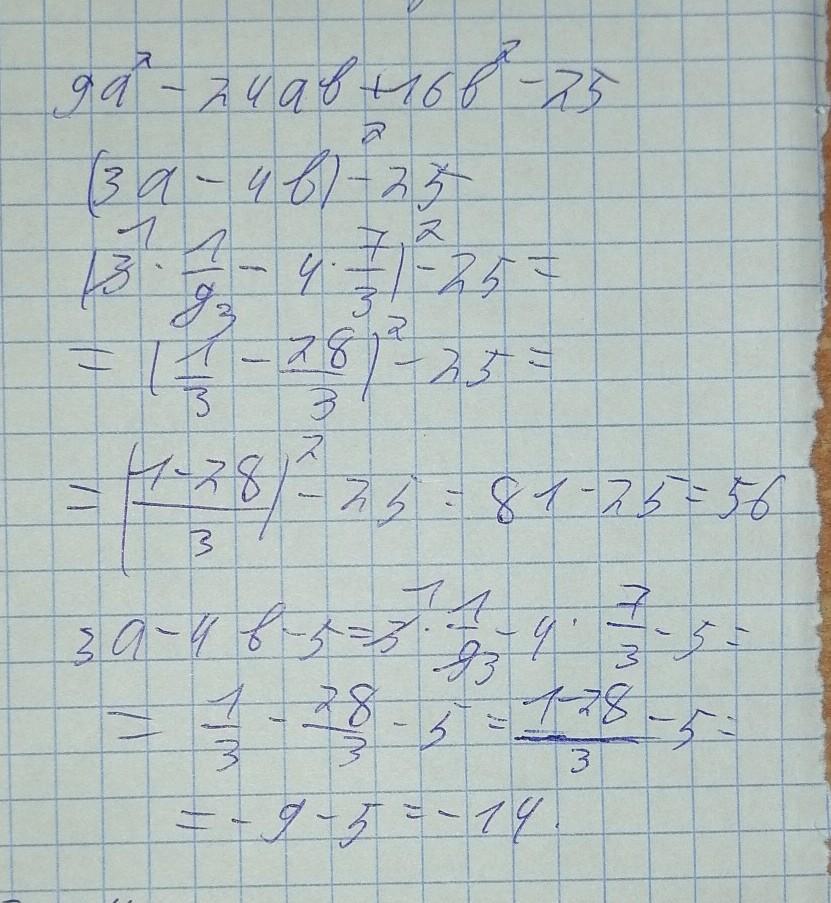 9a² - 24ab + 16b² - 25
(3a - 4b)² - 25
(3¹ · 1/9₃ - 4 · 7/3)² - 25 =
= (1/3 - 28/3)² - 25 =
= (1-28/3)² - 25 = 81 - 25 = 56
3a - 4b - 5 = 3¹ · 1/9₃ - 4 · 7/3 - 5 =
= 1/3 - 28/3 - 5 = 1-28/3 - 5 =
= -9 - 5 = -14.